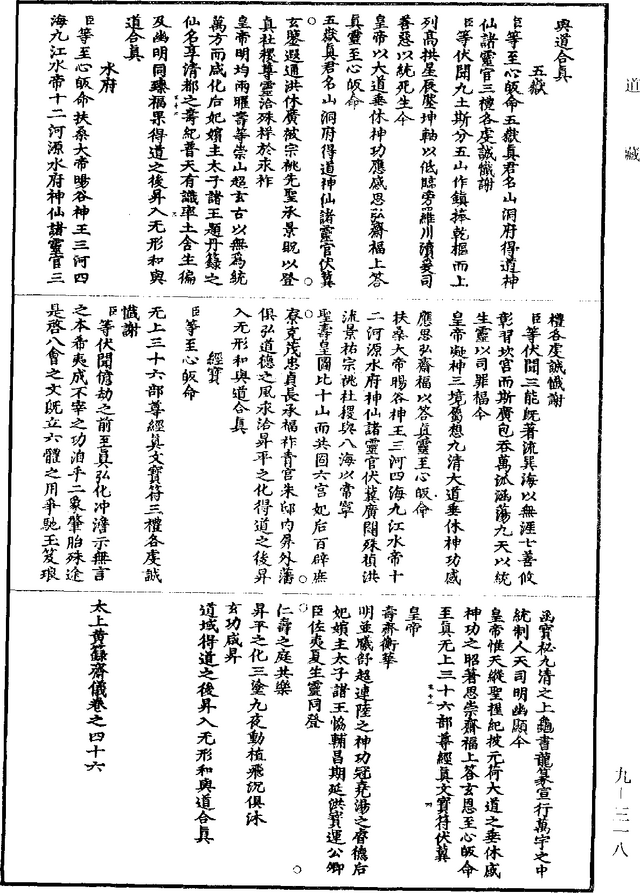 道藏
與道合真
五嶽
臣等至心皈命五嶽真君名山洞府得道神
仙諸靈官三禮各虔誠懺謝
臣等伏聞九土斯分五山作鎮捧乾樞而上
列高拱星辰壓坤軸以低臨旁羅川瀆爰司
善惡以統死生今
皇帝以大道垂休神功應感思弘齋福上答
真靈至心皈命
五嶽真君名山洞府得道神仙諸靈官伏冀
玄鑒遐通洪休廣被宗祧先聖承景貺以登
真社稷尊靈洽殊祥於永祚
皇帝明均兩曜壽等崇山超玄古以無為統
萬方而咸化后妃嬪主太子諸王題丹籙之
仙名享清都之壽紀普天有識率土含生徧
及幽明同臻福果得道之後昇入无形和與
道合真
水府
臣等至心皈命扶桑大帝暘谷神王三河四
海九江水帝十二河源水府神仙諸靈官三
禮各虔誠懺謝
臣等伏聞三能既著流巽海以無涯七善攸
彰習坎宮而斯廣包吞萬派涵蕩九天以統
生靈以司罪福今
皇帝凝神三境屬想九清大道垂休神功咸
應思弘齋福以答真靈至心皈命
扶桑大帝暘谷神王三河四海九江水帝十
二河源水府神仙諸靈官伏冀廣闡殊禎洪
流景祐宗祧社稷與八海以常寧
聖壽皇圖比十山而共固六宮妃后百辟庶
寮克茂忠貞長承福祚青宮朱邸內屏外藩
俱弘道德之風永洽昇平之化得道之後昇
入无形和與道合真
經寶
臣等至心皈命
无上三十六部尊經真文寶符三禮各虔誠
懺謝
臣等伏聞億劫之前至真弘化沖澹示無言
之本希夷成不宰之功洎乎二象肇胎殊途
是啓八會之文既立六體之用爭馳玉笈琅
函寶祕九清之上龜書龍篆宣行萬宇之中
統制人天司明幽顯今
皇帝惟天縱聖握紀披元荷大道之垂休感
神功之昭著思崇齋福上答玄恩至心皈命
至真无上三十六部尊經真文寶符伏冀
皇帝
壽齊衡華
明並曦舒超連陸之神功冠堯湯之睿德后
妃嬪主太子諸王協輔昌期延洪寶運公卿
臣佐爽夏生靈同登
仁壽之庭共樂
昇平之化三塗九夜動植飛沉俱沐
玄功咸昇
道域得道之後昇入无形和與道合真
太上黃籙齋儀卷之四十六
九－三一八